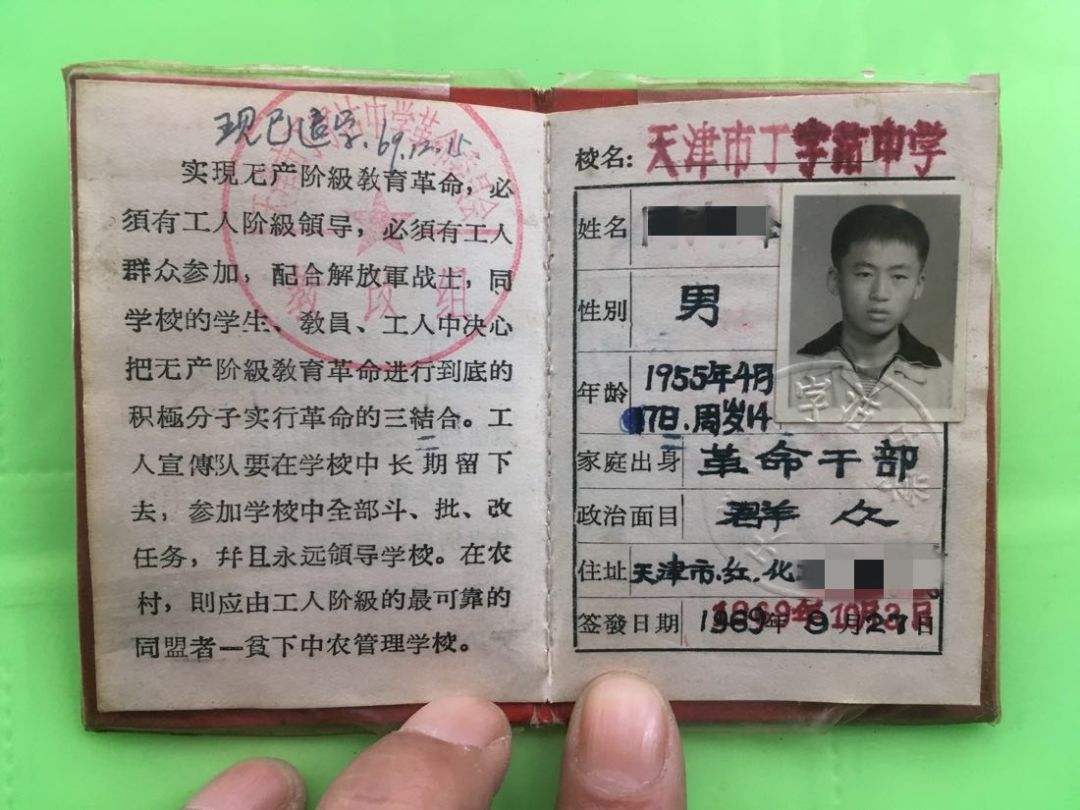 现已退学.69.12.15
实現无产阶級敎育革命，必
須有工人阶級領导，必須有工人
群众参加，配合解放軍战士，同
学校的学生、敎員、工人中决心
把无产阶級敎育革命进行到底的
积極分子实行革命的三結合。工
人宣傳队要在学校中长期留下
去，参加学校中全部斗、批、改
任务，幷且永远領导学校。在农
村，則应由工人阶級的最可靠的
同盟者—贫下中农管理学校。
教改组
校名：天津市丁字沽中学
姓名
性别 男
年龄 1955年4月
17日.周岁14
家庭出身 革命干部
政治面目 群众
住址 天津市.红.化
签發日期 1969年9月27日
1969年10月3日